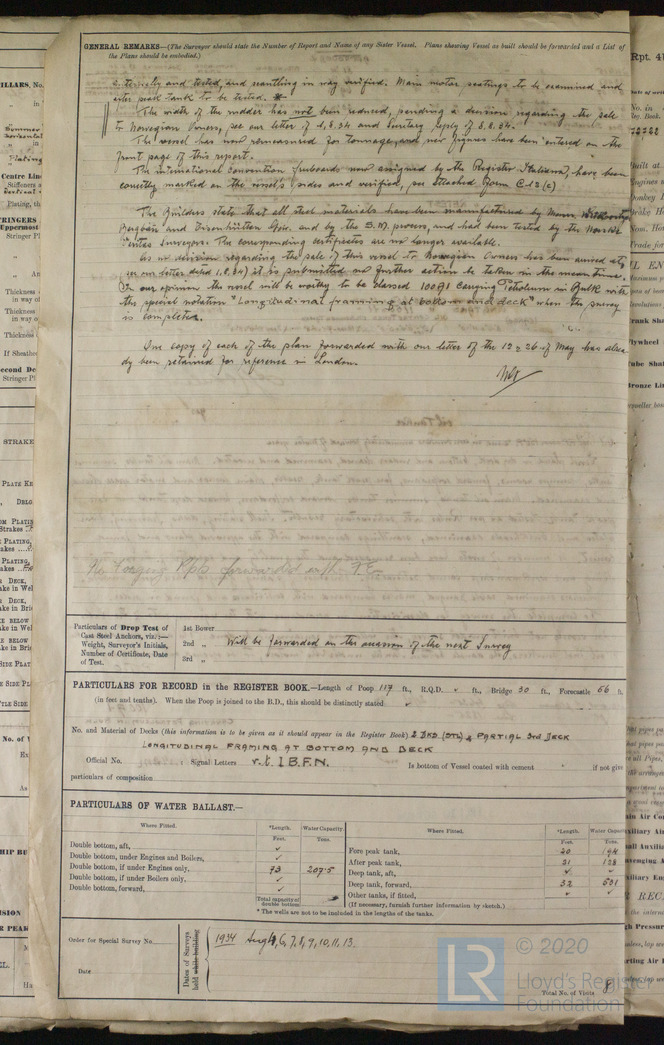 GENERAL REMARKS—(The Surveyor should state the Number of Report and Name of any Sister Vessel. Plans showing Vessel as built should be forwarded and a List of
the Plans should be embodied.)
internally and tested, and scantling in way verified. Main motor seatings to be examined and
after peak tank to be tested.
The width of the rudder has not been reduced, pending a decision regarding the sale
to Norwegian Owners, see our letter of 1.8.34 and Surctary reply of 8.8.34.
The vessel has now remeasured for tonnage, and new figures have been entered on the
front page of this report.
The international convention freeboards now assigned by the Registro Italiano, have been
correctly marked on the vessel's sides and verified, see attached Form C 13 (c)
The Builders state that all steel materials have been manufactured by Messrs. Witkowitz
Bergbau and Eisenhütten Gew. and by the S.M. process, and had been tested by the
Veritas Surveyors. The corresponding certificates are no longer available.
As no decision regarding the sale of this vessel to Norwegian Owners has been arrived at,
(see our letter dated 1.8.34) it is submitted no further action be taken in the meantime.
In our opinion the vessel will be worthy to be classed 100A1 Carrying Petroleum in Bulk with
the special notation "Longitudinal framing at bottom and deck" when the survey
is completed.
One copy of each of the plan forwarded with our letter of the 12 & 26 of May has alrea-
dy been retained for reference in London.
No Forging Rpts forwarded with F.E.
Particulars of Drop Test of
Cast Steel Anchors, viz.:—
Weight, Surveyor's Initials,
Number of Certificate, Date
of Test.
1st Bower
2nd „ Will be forwarded on the occasion of the next Survey
3rd „
PARTICULARS FOR RECORD in the REGISTER BOOK.—Length of Poop 117 ft., R.Q.D. ✓ ft., Bridge 30 ft., Forecastle 66 ft.
(in feet and tenths). When the Poop is joined to the B.D., this should be distinctly stated ✓
No. and Material of Decks (this information is to be given as it should appear in the Register Book) 2 DKS (STL) & PARTIAL 3RD DECK
LONGITUDINAL FRAMING AT BOTTOM AND DECK
Official No. Signal Letters I.B.F.N. Is bottom of Vessel coated with cement if not give
particulars of composition
PARTICULARS OF WATER BALLAST.—
Where Fitted. *Length. Water Capacity. Where Fitted. *Length. Water Capacity.
Feet. Tons. Feet. Tons.
Double bottom, aft, ✓
Double bottom, under Engines and Boilers, ✓
Double bottom, if under Engines only, 73 207.5
Double bottom, if under Boilers only, ✓
Double bottom, forward, ✓
Total capacity of double bottom
Fore peak tank, 20 194
After peak tank, 21 128
Deep tank, aft, ✓ ✓
Deep tank, forward, 32 501
Other tanks, if fitted,
(If necessary, furnish further information by sketch.)
* The wells are not to be included in the lengths of the tanks.
Order for Special Survey No.
Date
Dates of Surveys held while building
1934 Aug 4, 6, 7, 8, 9, 10, 11, 13.
Total No. of Visits 8
© 2020
LR
Lloyd's Register
Foundation